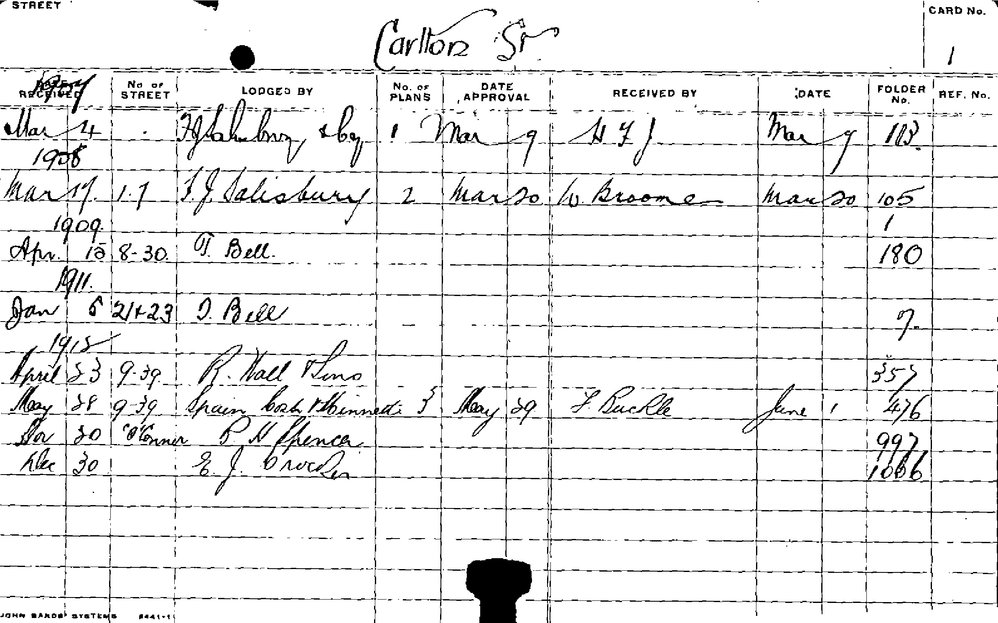 STREET
CARD No.
Carlton St
1
RECEIVED No OF STREET LODGED BY No. OF PLANS DATE APPROVAL RECEIVED BY DATE FOLDER No. REF. No.
Mar 4 1 Mar 9 H F J Mar 9
1908
Mar 17 17 F. J. Salisbury 2 Mar 20 W Broome Mar 20 105
1909 1
Apr. 15 8-30. T. Bell. 180
1911.
Jan 5 21+23 T. Bell 7.
April 23 9-39 R. Hall & Sons 357
May 28 9-39 Spain Cosh & Minnett 3 May 29 F Buckle June 1 476
Nov 20 R H Spencer 997
Dec 30 E J. Crocker 1066
JOHN SANDS' SYSTEMS